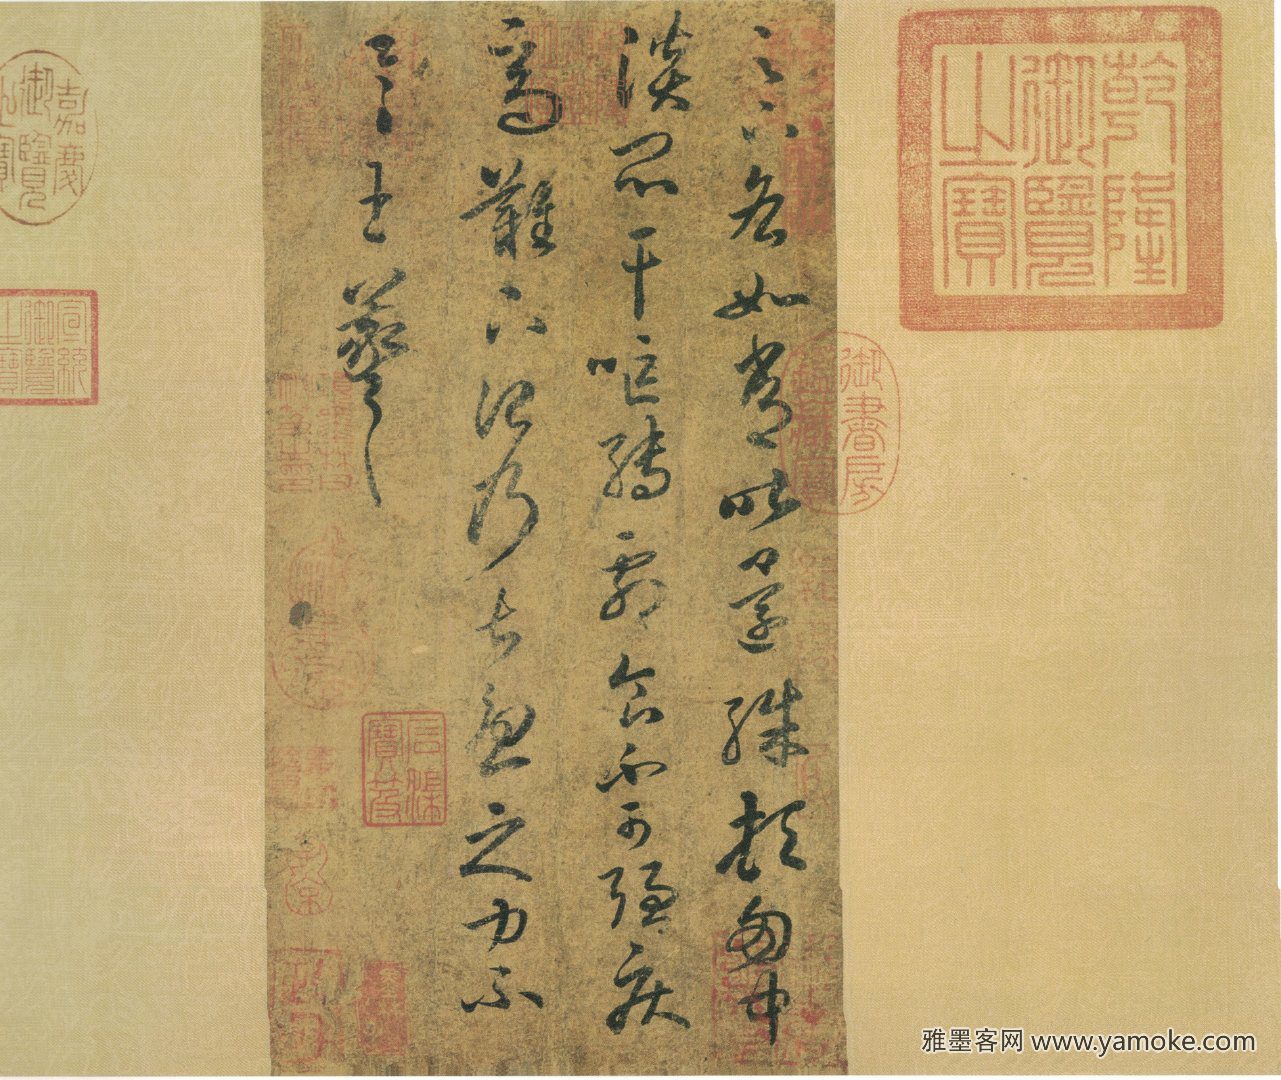 乾隆
御覽
之寶
御書房
足下各如常昨還殊頓匈中
淡悶干嘔轉劇食不可強疾
高難下治乃甚憂之力不
一一王羲之
石渠
寶笈
嘉慶
御覽
之寶
宣統
御覽
之寶
雅墨客网 www.yamoke.com